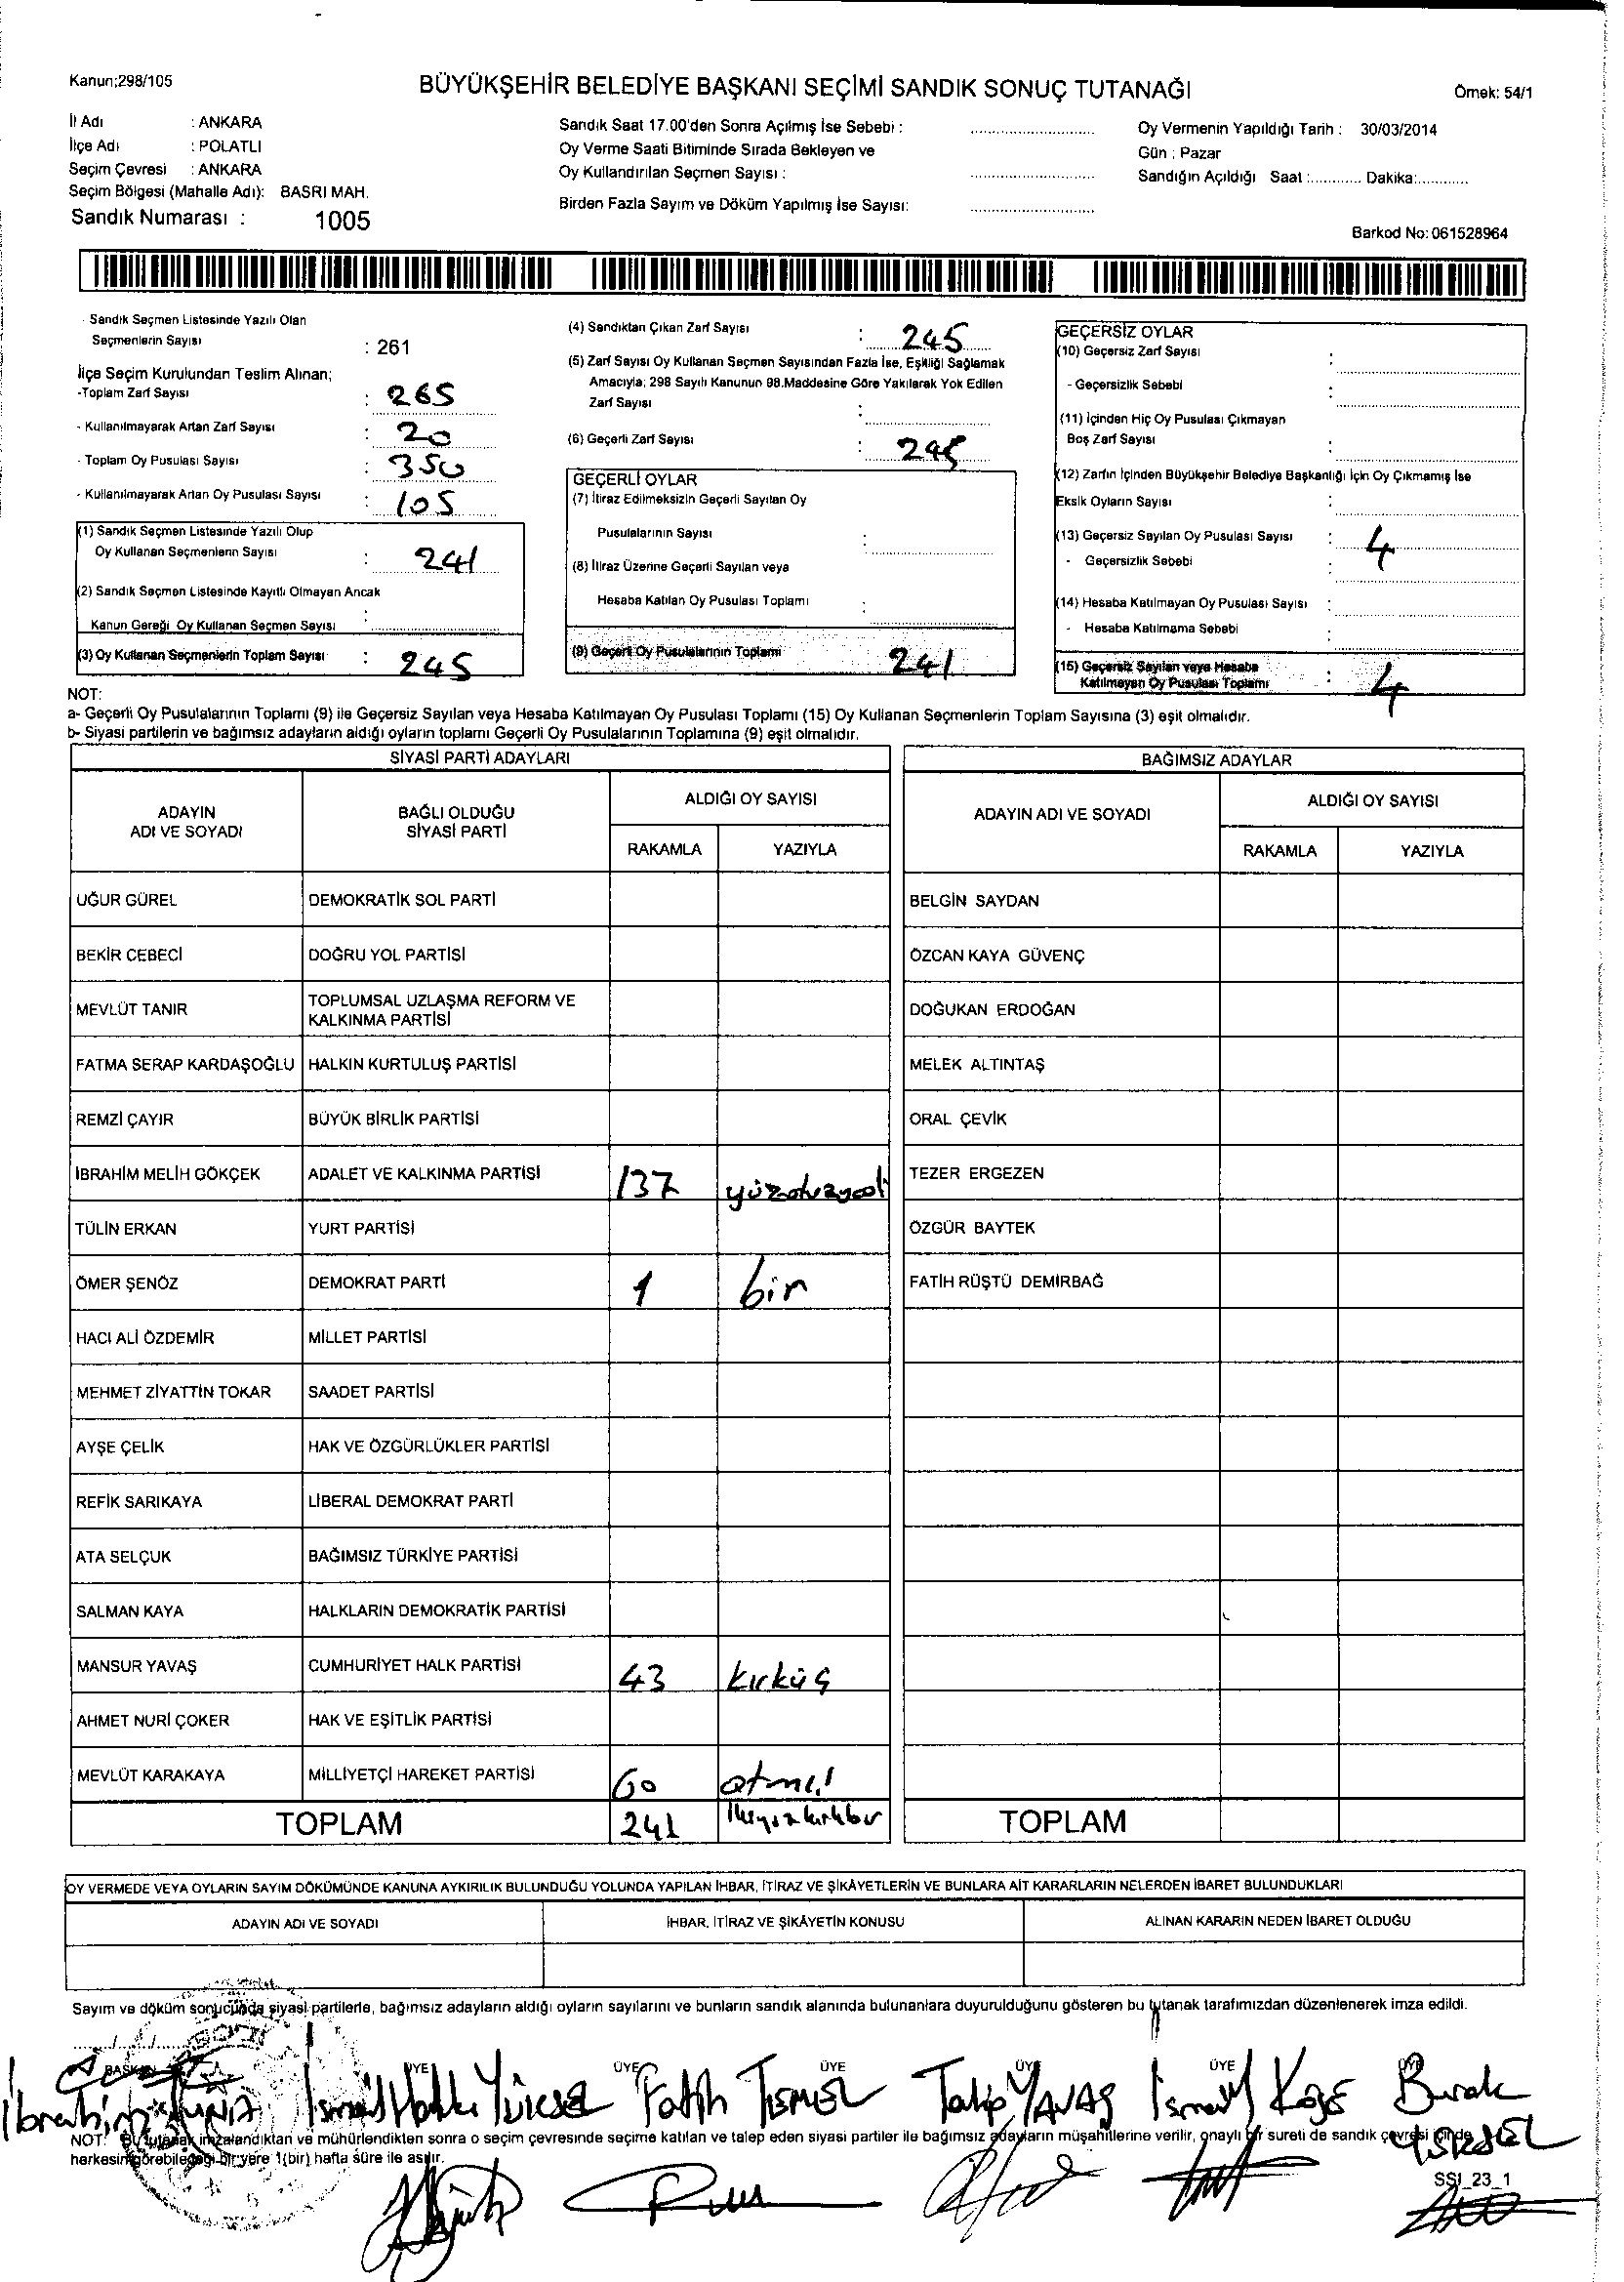 Kanun:298/105
BÜYÜKŞEHİR BELEDİYE BAŞKANI SEÇİMİ SANDIK SONUÇ TUTANAĞI
Örnek: 54/1
İl Adı : ANKARA
İlçe Adı : POLATLI
Seçim Çevresi : ANKARA
Seçim Bölgesi (Mahalle Adı): BASRI MAH.
Sandık Numarası : 1005
Sandık Saat 17.00'den Sonra Açılmış İse Sebebi :
Oy Verme Saati Bitiminde Sırada Bekleyen ve
Oy Kullandırılan Seçmen Sayısı :
Birden Fazla Sayım ve Döküm Yapılmış İse Sayısı:
Oy Vermenin Yapıldığı Tarih : 30/03/2014
Gün : Pazar
Sandığın Açıldığı Saat :............ Dakika:............
Barkod No: 061528964
- Sandık Seçmen Listesinde Yazılı Olan
Seçmenlerin Sayısı : 261
İlçe Seçim Kurulundan Teslim Alınan;
-Toplam Zarf Sayısı : 265
- Kullanılmayarak Artan Zarf Sayısı : 20
- Toplam Oy Pusulası Sayısı : 350
- Kullanılmayarak Artan Oy Pusulası Sayısı : 105
(1) Sandık Seçmen Listesinde Yazılı Olup
Oy Kullanan Seçmenlerin Sayısı : 241
(2) Sandık Seçmen Listesinde Kayıtlı Olmayan Ancak
Kanun Gereği Oy Kullanan Seçmen Sayısı :
(3) Oy Kullanan Seçmenlerin Toplam Sayısı : 245
(4) Sandıktan Çıkan Zarf Sayısı : 245
(5) Zarf Sayısı Oy Kullanan Seçmen Sayısından Fazla İse, Eşitliği Sağlamak
Amacıyla; 298 Sayılı Kanunun 98.Maddesine Göre Yakılarak Yok Edilen
Zarf Sayısı :
(6) Geçerli Zarf Sayısı : 245
GEÇERLİ OYLAR
(7) İtiraz Edilmeksizin Geçerli Sayılan Oy
Pusulalarının Sayısı :
(8) İtiraz Üzerine Geçerli Sayılan veya
Hesaba Katılan Oy Pusulası Toplamı :
(9) Geçerli Oy Pusulalarının Toplamı 241
GEÇERSİZ OYLAR
(10) Geçersiz Zarf Sayısı :
- Geçersizlik Sebebi :
(11) İçinden Hiç Oy Pusulası Çıkmayan
Boş Zarf Sayısı :
(12) Zarfın İçinden Büyükşehir Belediye Başkanlığı İçin Oy Çıkmamış İse
Eksik Oyların Sayısı :
(13) Geçersiz Sayılan Oy Pusulası Sayısı : 4
- Geçersizlik Sebebi :
(14) Hesaba Katılmayan Oy Pusulası Sayısı :
- Hesaba Katılmama Sebebi :
(15) Geçersiz Sayılan veya Hesaba
Katılmayan Oy Pusulası Toplamı : 4
NOT:
a- Geçerli Oy Pusulalarının Toplamı (9) ile Geçersiz Sayılan veya Hesaba Katılmayan Oy Pusulası Toplamı (15) Oy Kullanan Seçmenlerin Toplam Sayısına (3) eşit olmalıdır.
b- Siyasi partilerin ve bağımsız adayların aldığı oyların toplamı Geçerli Oy Pusulalarının Toplamına (9) eşit olmalıdır.
SİYASİ PARTİ ADAYLARI
ADAYIN ADI VE SOYADI BAĞLI OLDUĞU SİYASİ PARTİ ALDIĞI OY SAYISI
RAKAMLA YAZIYLA
UĞUR GÜREL DEMOKRATİK SOL PARTİ
BEKİR CEBECİ DOĞRU YOL PARTİSİ
MEVLÜT TANIR TOPLUMSAL UZLAŞMA REFORM VE
KALKINMA PARTİSİ
FATMA SERAP KARDAŞOĞLU HALKIN KURTULUŞ PARTİSİ
REMZİ ÇAYIR BÜYÜK BİRLİK PARTİSİ
İBRAHİM MELİH GÖKÇEK ADALET VE KALKINMA PARTİSİ 137
TÜLİN ERKAN YURT PARTİSİ
ÖMER ŞENÖZ DEMOKRAT PARTİ 1 bir
HACI ALİ ÖZDEMİR MİLLET PARTİSİ
MEHMET ZİYATTİN TOKAR SAADET PARTİSİ
AYŞE ÇELİK HAK VE ÖZGÜRLÜKLER PARTİSİ
REFİK SARIKAYA LİBERAL DEMOKRAT PARTİ
ATA SELÇUK BAĞIMSIZ TÜRKİYE PARTİSİ
SALMAN KAYA HALKLARIN DEMOKRATİK PARTİSİ
MANSUR YAVAŞ CUMHURİYET HALK PARTİSİ 43 kırküç
AHMET NURİ ÇOKER HAK VE EŞİTLİK PARTİSİ
MEVLÜT KARAKAYA MİLLİYETÇİ HAREKET PARTİSİ 60
TOPLAM 241 ikiyüzkırkbir
BAĞIMSIZ ADAYLAR
ADAYIN ADI VE SOYADI ALDIĞI OY SAYISI
RAKAMLA YAZIYLA
BELGİN SAYDAN
ÖZCAN KAYA GÜVENÇ
DOĞUKAN ERDOĞAN
MELEK ALTINTAŞ
ORAL ÇEVİK
TEZER ERGEZEN
ÖZGÜR BAYTEK
FATİH RÜŞTÜ DEMİRBAĞ
TOPLAM
OY VERMEDE VEYA OYLARIN SAYIM DÖKÜMÜNDE KANUNA AYKIRILIK BULUNDUĞU YOLUNDA YAPILAN İHBAR, İTİRAZ VE ŞİKÂYETLERİN VE BUNLARA AİT KARARLARIN NELERDEN İBARET BULUNDUKLARI
ADAYIN ADI VE SOYADI İHBAR, İTİRAZ VE ŞİKÂYETİN KONUSU ALINAN KARARIN NEDEN İBARET OLDUĞU
Sayım ve döküm sonucunda siyasi partilerle, bağımsız adayların aldığı oyların sayılarını ve bunların sandık alanında bulunanlara duyurulduğunu gösteren bu tutanak tarafımızdan düzenlenerek imza edildi.
BAŞKAN ÜYE ÜYE ÜYE ÜYE ÜYE ÜYE
İbrahim İsmail Hakkı Yüksel Fatih Talip YAVAŞ İsmail Köse Burak
NOT: Bu tutanak imzalandıktan ve mühürlendikten sonra o seçim çevresinde seçime katılan ve talep eden siyasi partiler ile bağımsız adayların müşahitlerine verilir, onaylı bir sureti de sandık çevresi içinde
herkesin görebileceği bir yere 1(bir) hafta süre ile asılır.
SSI_23_1